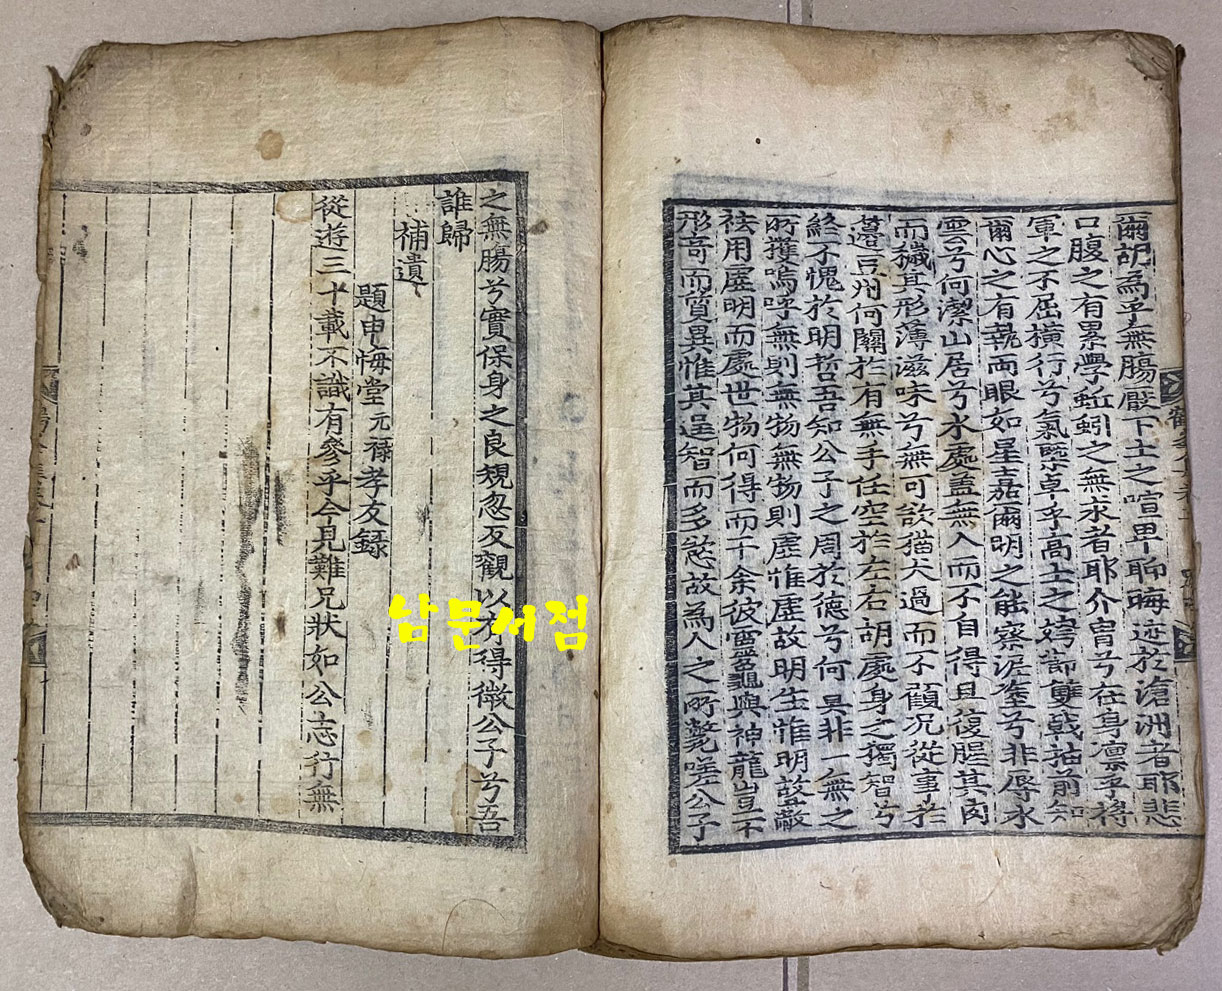 爾胡爲乎無腸厭下士之喧卑聊晦迹於滄洲者耶悲
口腹之有累學蚯蚓之無求者耶介胄兮在身凛乎將
軍之不屈橫行兮氣槩卓乎高士之姱節雙戟抽前知
爾心之有執兩眼如星嘉爾明之能察泥塗兮非辱水
雲兮何潔山居兮水處盖無入而不自得且復腥其肉
而穢其形薄滋味兮無可欲猫犬過而不顧况從事於
籩豆州何關於有無手任空於左右胡處身之獨智兮
終不愧於明哲吾知公子之周於德兮何是非一無之
所擭嗚呼無則無物無物則虛惟虛故明生惟明故蔽
祛用虛明而處世物何得而干余彼靈龜與神龍豈不
形奇而質異惟其逞智而多慾故爲人之所斃嗟公子
之無腸兮實保身之良規忽反觀以有得微公子兮吾
誰歸
補遺
題申悔堂元祿孝友錄
從遊三十載不識有參乎今見難兄狀如公志行無
남문서점